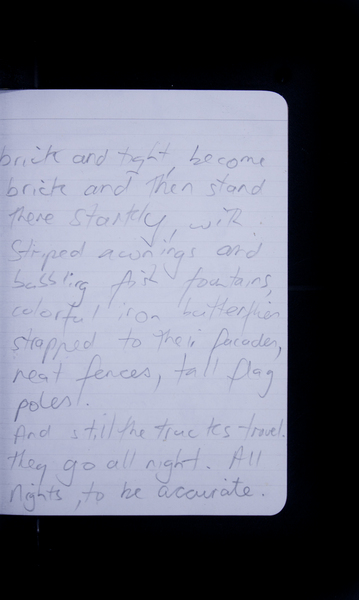 brick and tight, become
brick and then stand
there starkly, with
striped awnings and
babbling fish fountains,
colorful iron butterflies
strapped to their facades,
neat fences, tall flag
poles.
And still the trucks travel.
they go all night. All
nights, to be accurate.